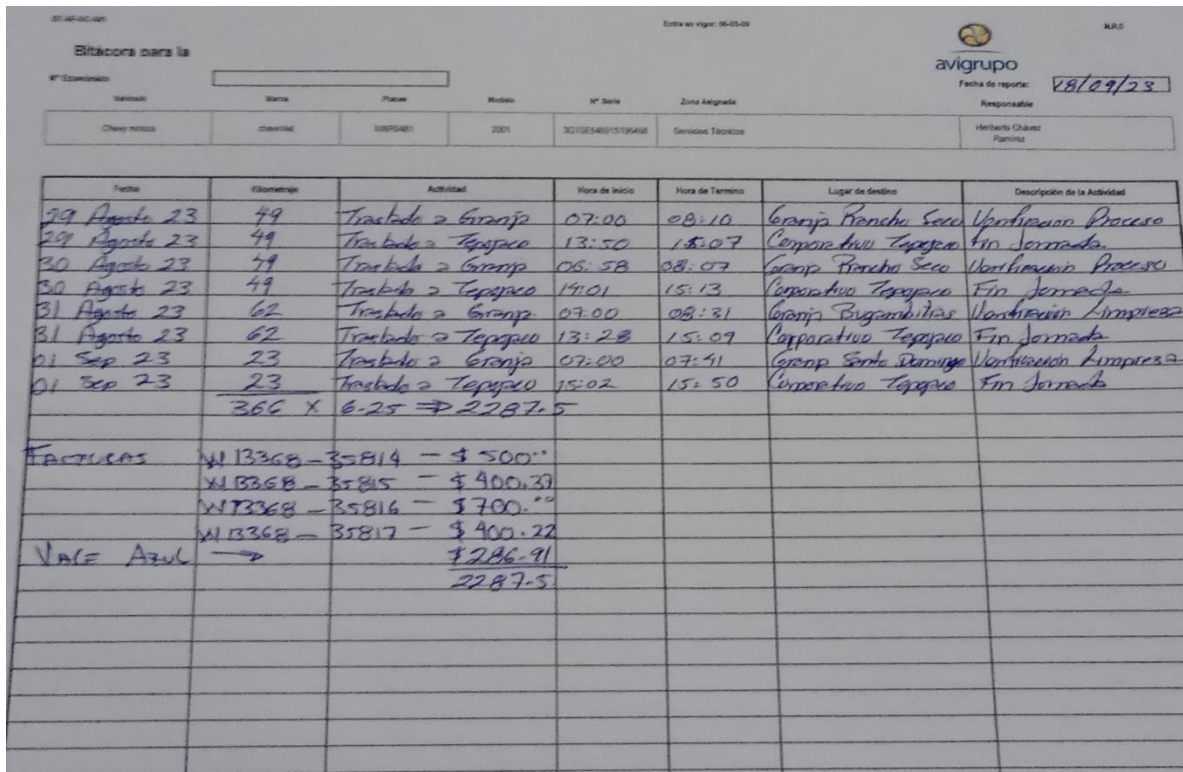 Entra en vigor: 06-05-09
Bitácora para la
avigrupo
Nº Económico
Fecha de reporte: 18/09/23
Marca Placas Modelo Nº Serie Zona Asignada Responsable
chevrolet 2001 Servicios Técnicos Heriberto Chávez
Ramírez
Fecha Kilometraje Actividad Hora de Inicio Hora de Termino Lugar de destino Descripción de la Actividad
29 Agosto 23 49 Traslado a Granja 07:00 08:10 Granja Rancho Seco Verificacion Proceso
29 Agosto 23 49 Traslado a Tepejaco 13:50 15:07 Corporativo Tepejaco Fin Jornada
30 Agosto 23 49 Traslado a Granja 06:58 08:07 Granja Rancho Seco Verificación Proceso
30 Agosto 23 49 Traslado a Tepejaco 14:01 15:13 Corporativo Tepejaco Fin Jornada
31 Agosto 23 62 Traslado a Granja 07:00 08:31 Granja Bugambilias Verificación Limpieza
31 Agosto 23 62 Traslado a Tepejaco 13:28 15:09 Corporativo Tepejaco Fin Jornada
01 Sep 23 23 Traslado a Granja 07:00 07:41 Granja Santo Domingo Verificación Limpieza
01 Sep 23 23 Traslado a Tepejaco 15:02 15:50 Corporativo Tepejaco Fin Jornada
366 X 6.25 ⇒ 2287.5
FACTURAS W13368-35814 - $500.00
W13368-35815 - $400.37
W13368-35816 - $700.00
W13368-35817 - $400.22
VALE AZUL → $286.91
2287.5